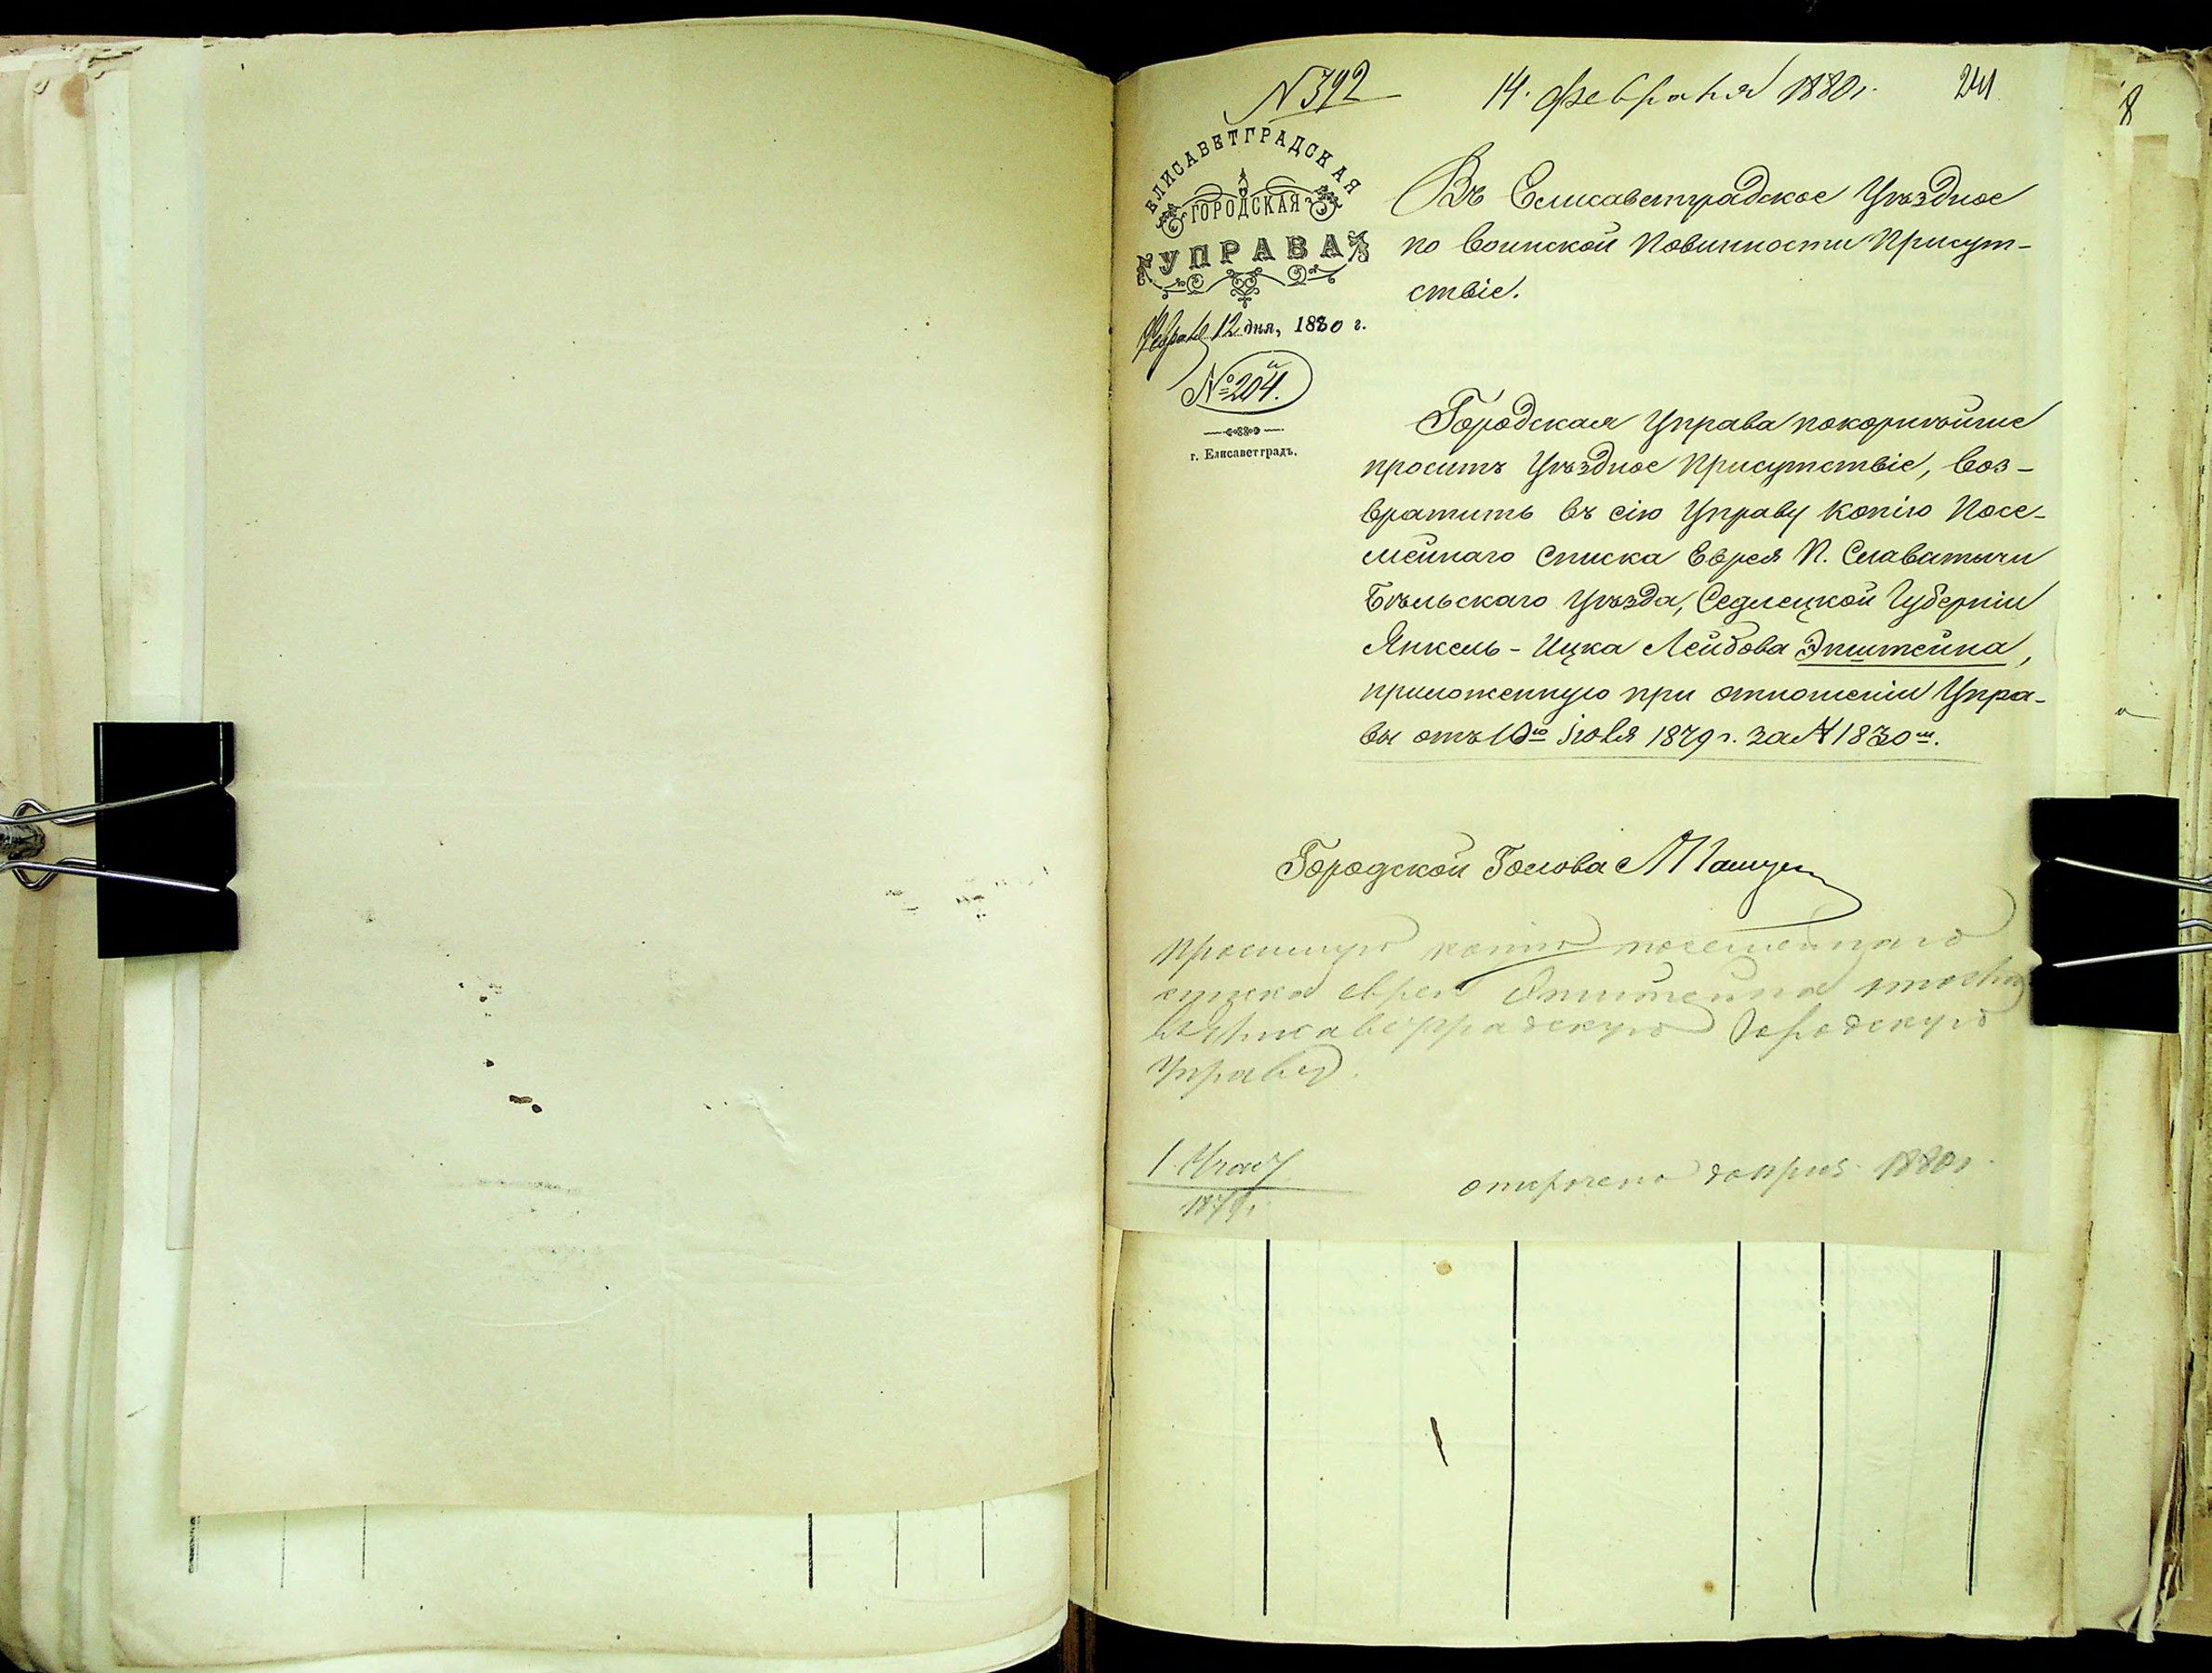 N 392
14. Февраля 1880 г.
241
8
ЕЛИСАВЕТГРАДСКАЯ
ГОРОДСКАЯ
УПРАВА
Февраля 12 дня, 1880 г.
№ 204.
г. Елисаветградъ.
Въ Елисаветградское Уѣздное
по Воинской Повинности Присут-
ствіе.
Городская Управа покорнѣйше
проситъ Уѣздное Присутствіе, воз-
вратить въ сію Управу копію Посе-
мейнаго списка Еврея П. Славатычи
Бѣльскаго Уѣзда, Седлецкой Губерніи
Янкель-Ицка Лейбова Эпштейна,
приложенную при отношеніи Упра-
вы отъ 10го Іюля 1879 г. за № 1830 ш.
Городской Голова
Просимую копію посемейнаго
списка еврея Эпштейна
въ Елисаветградскую Городскую
Управу.
1879 г.
1880 г.